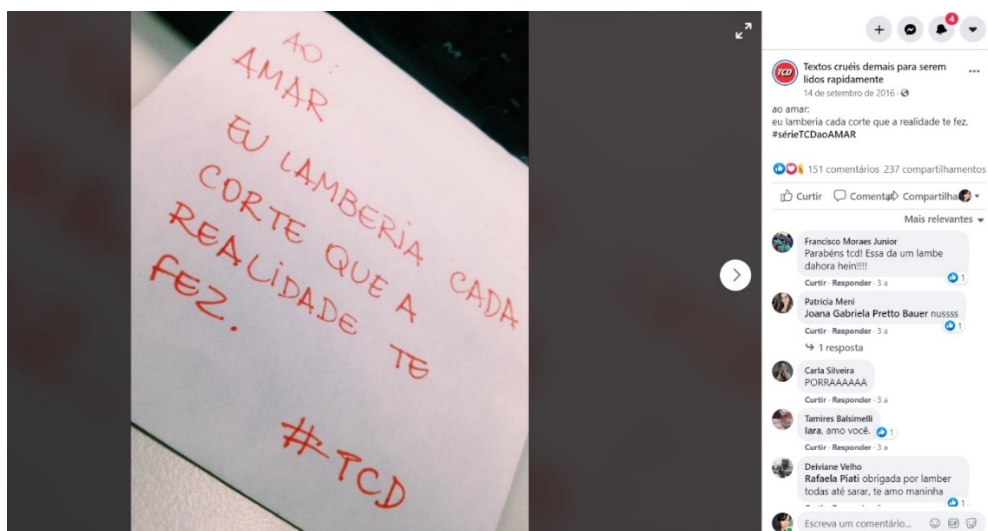 AO:
AMAR
EU LAMBERIA CADA
CORTE QUE A
REALIDADE TE
FEZ.
#TCD
4
TCD
Textos cruéis demais para serem
lidos rapidamente
14 de setembro de 2016 ·
ao amar:
eu lamberia cada corte que a realidade te fez.
#sérieTCDaoAMAR
151 comentários 237 compartilhamentos
Curtir Comenta Compartilha
Mais relevantes
Francisco Moraes Junior
Parabéns tcd! Essa da um lambe
dahora hein!!!!
1
Curtir · Responder · 3 a
Patricia Meni
Joana Gabriela Pretto Bauer nussss
1
Curtir · Responder · 3 a
1 resposta
Carla Silveira
PORRAAAAAA
Curtir · Responder · 3 a
Tamires Balsimelli
Iara, amo você. 1
Curtir · Responder · 3 a
Deiviane Velho
Rafaela Piati obrigada por lamber
todas até sarar, te amo maninha
1
Escreva um comentário...